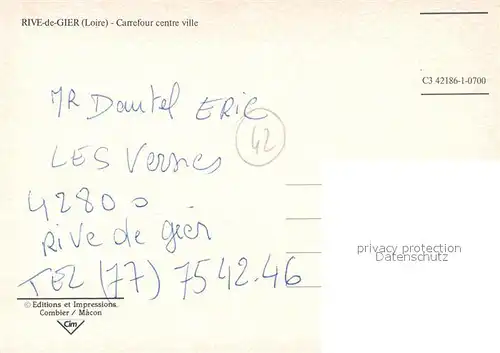 RIVE-de-GIER (Loire) - Carrefour centre ville
C3 42186-1-0700
MR Dantel ERIC
42
LES Vernes
42800
Rive de gier
TEL (77) 75 42.46
privacy protection
Datenschutz
© Editions et Impressions,
Combier / Mâcon
Cim